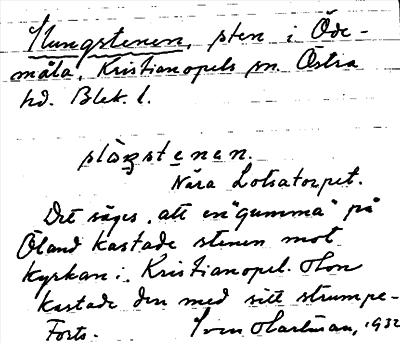 Slungstenen, sten i Öde-
måla, Kristianopels sn. Östra
hd. Blek. l.
Nära Lotsatorpet.
Det säges, att en "gumma" på
Öland kastade stenen mot
kyrkan i Kristianopel. Hon
kastade den med sitt strumpe-
Forts. Sven Hartman, 1932